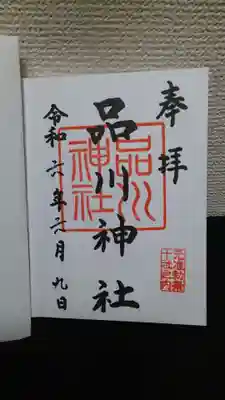 奉拝
品川神社
品川神社
令和六年六月九日